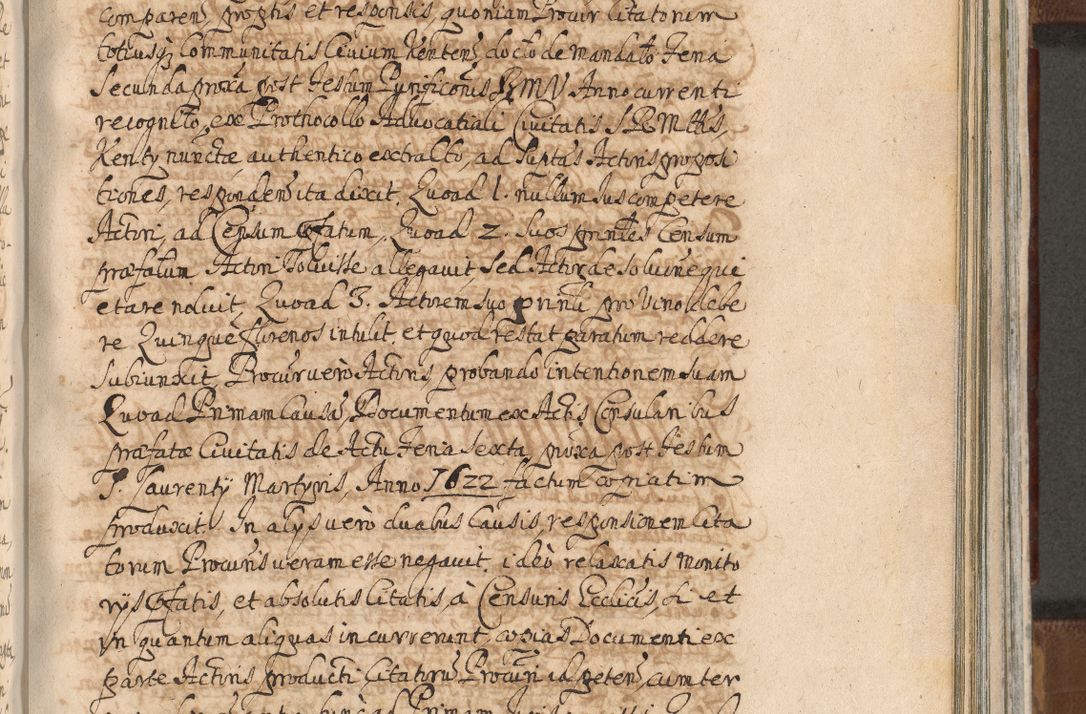 comparens propriis et responsis, quoniam Procur Citatorum
totiusq; Communitatis Civium Kentens, docto de mandato Feria
Secunda proxa post Festum Purificonis BMV Anno currenti
recognito, ex Prothocollo Advocatiali Civitatis S R Mttis,
Kenty nunctæ authentico extracto, ad suptas Actoris proposi
tiones, respondens ita dixit. Quoad 1. nullum Jus competere
Actori, ad Censum Pfatum, Quoad 2. Suos prinles Censum
præfatum Actori Solvisse allegavit, sed Actor de solutine qui
etare noluit, Quoad 3. Actorem suo prinli pro Vino debe
re Quinque florenos intulit, et quod restat paratum reddere
subiunxit, Procur vero Actoris, probando intentionem suam
Quoad Primam Causa, Documentum ex Actis Consularibus
præfatæ Civitatis de Actu Feria Sexta, proxa post Festum
S. Laurenty Martyris, Anno 1622 factum cogniatim
produxit. In alys vero duabus Causis, responsionem Cita
torum Procuris veram esse negavit, ideo relaxatis monito
rys Pfatis, et absolutis Citatis, a Censuris Ecclicis, si et
in quantum aliquas incurrerunt, copias Documenti ex
parte Actoris producti Citatorum Procuri id petens, cum ter